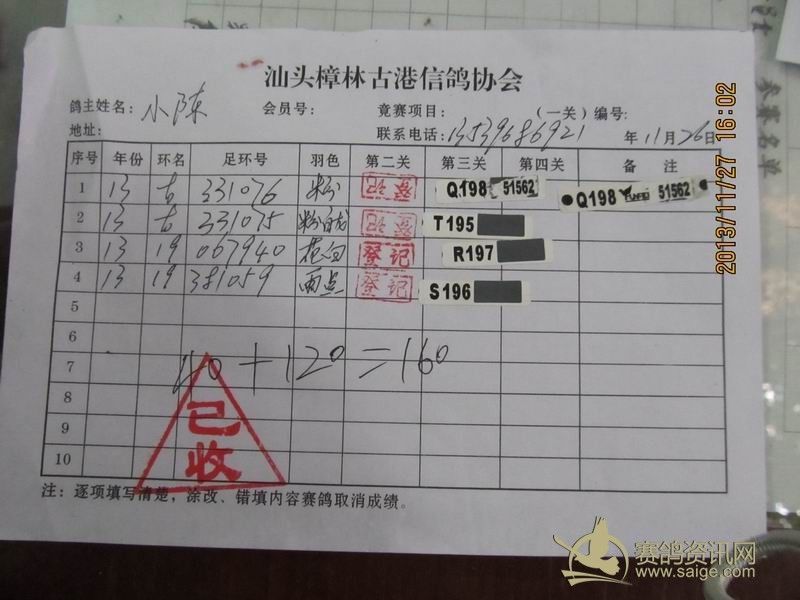 汕头樟林古港信鸽协会
鸽主姓名: 小陈 会员号: 竞赛项目: (一关) 编号:
地址: 联系电话: 13539686921 年 11 月 26 日
序号 年份 环名 足环号 羽色 第二关 第三关 第四关 备 注
1 13 古 331076 粉 登记 Q198 51562 Q198 51562
2 13 古 331075 粉 登记 T195
3 13 19 067940 花白 登记 R197
4 13 19 381059 雨点 登记 S196
5
6
7 40+120=160
8
9
10
已收
注: 逐项填写清楚, 涂改、错填内容赛鸽取消成绩。
2013/11/27 16:02
赛鸽资讯网
www.saige.com